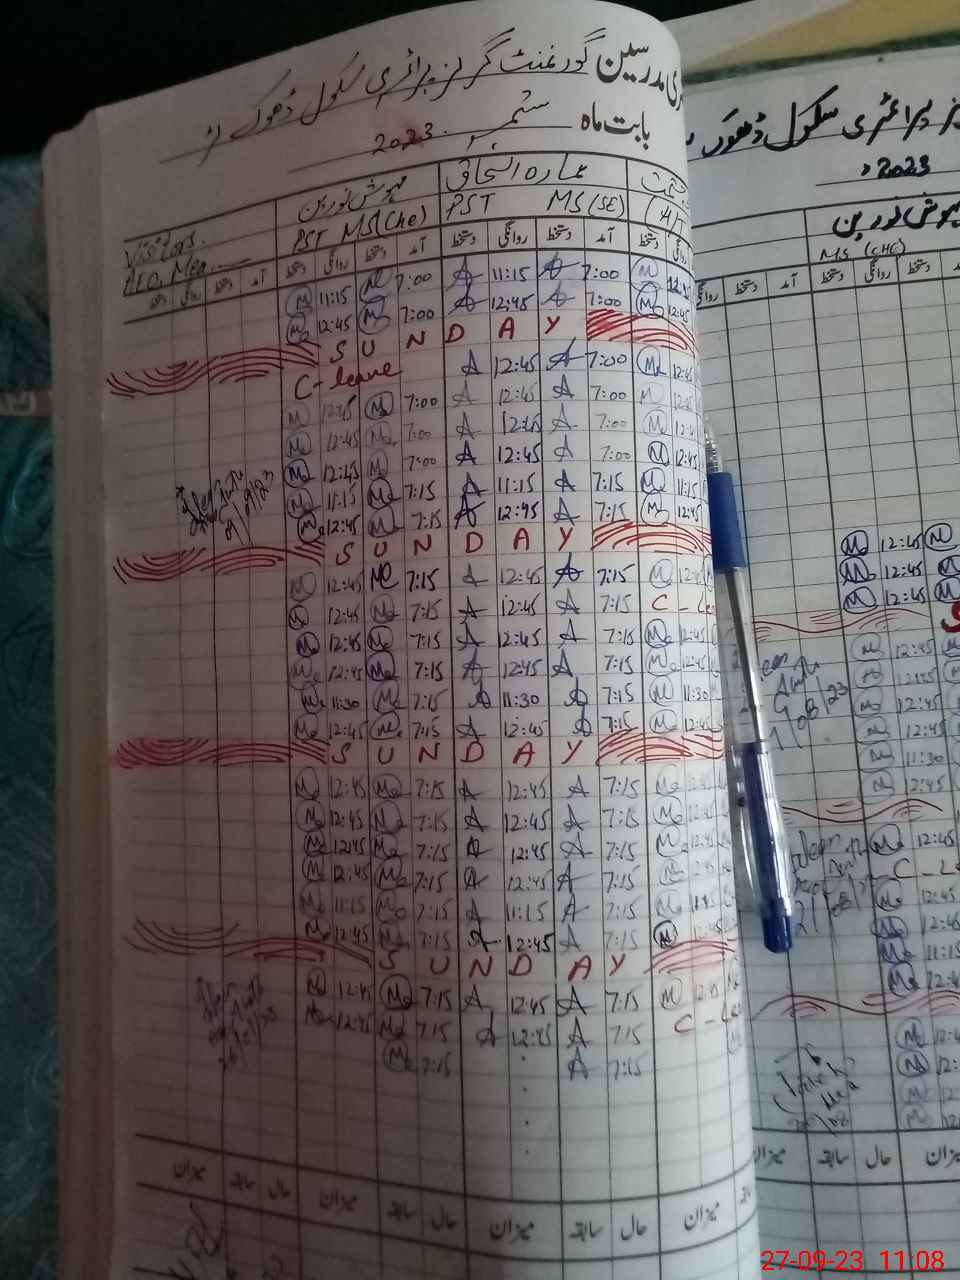 ری مدرسین گورنمنٹ گرلز پرائمری سکول ڈھوک
بابت ماہ ستمبر 2023
مہوش نورین عمارہ اسحاق
Visitors. PST MS(Che) PST MS(SE) (H/T
AEO, Mea
دستخط روانگی دستخط آمد دستخط روانگی دستخط آمد دستخط روانگی دستخط آمد دستخط روانگی
M 11:15 M 7:00 A 11:15 A 7:00 M 12:45
M 12:45 M 7:00 A 12:45 A 7:00 M 12:45
SUNDAY
C-leave A 12:45 A 7:00 M 12:45
M 12:45 M 7:00 A 12:45 A 7:00 M 12:45
M 12:45 M 7:00 A 12:45 A 7:00 M 12:4
M 12:45 M 7:00 A 12:45 A 7:00 M 12:45
M 11:15 M 7:15 A 11:15 A 7:15 M 11:15
M 12:45 M 7:15 A 12:45 A 7:15 M 12:45
SUNDAY
M 12:45 M 7:15 A 12:45 A 7:15 M 12:4
M 12:45 M 7:15 A 12:45 A 7:15 C-Lea
M 12:45 M 7:15 A 12:45 A 7:15 M 12:45
M 12:45 M 7:15 A 12:45 A 7:15 M 12:45
M 11:30 M 7:15 A 11:30 A 7:15 M 11:30
M 12:45 M 7:15 A 12:45 A 7:15 M 12:45
SUNDAY
M 12:45 M 7:15 A 12:45 A 7:15 M 12:45
M 12:45 M 7:15 A 12:45 A 7:15 M 12:45
M 12:45 M 7:15 A 12:45 A 7:15 M 12:45
M 12:45 M 7:15 A 12:45 A 7:15 M 12:45
M 11:15 M 7:15 A 11:15 A 7:15 M 11:15
M 12:45 M 7:15 A 12:45 A 7:15 M 12:45
SUNDAY
M 12:45 M 7:15 A 12:45 A 7:15 M 12:45
M 12:45 M 7:15 A 12:45 A 7:15 C-Lea
M 7:15 A 7:15
میزان سابقہ حال میزان سابقہ حال میزان سابقہ حال میزان
ز پرائمری سکول ڈھوک
2023ء
مہوش نورین
MS (CHE)
روانگی دستخط آمد دستخط روانگی دستخط
M 12:45 M
M 12:45 M
M 12:45 M
S
M 12:45
M 12:45
M 12:45
M 12:45
M 11:30
M 12:45
M 12:45
C-Le
M 12:45
M 12:45
M 11:15
M 12:4
M 12:4
M 12:
M 12
M 12
میزان سابقہ حال میزان
27-09-23 11:08